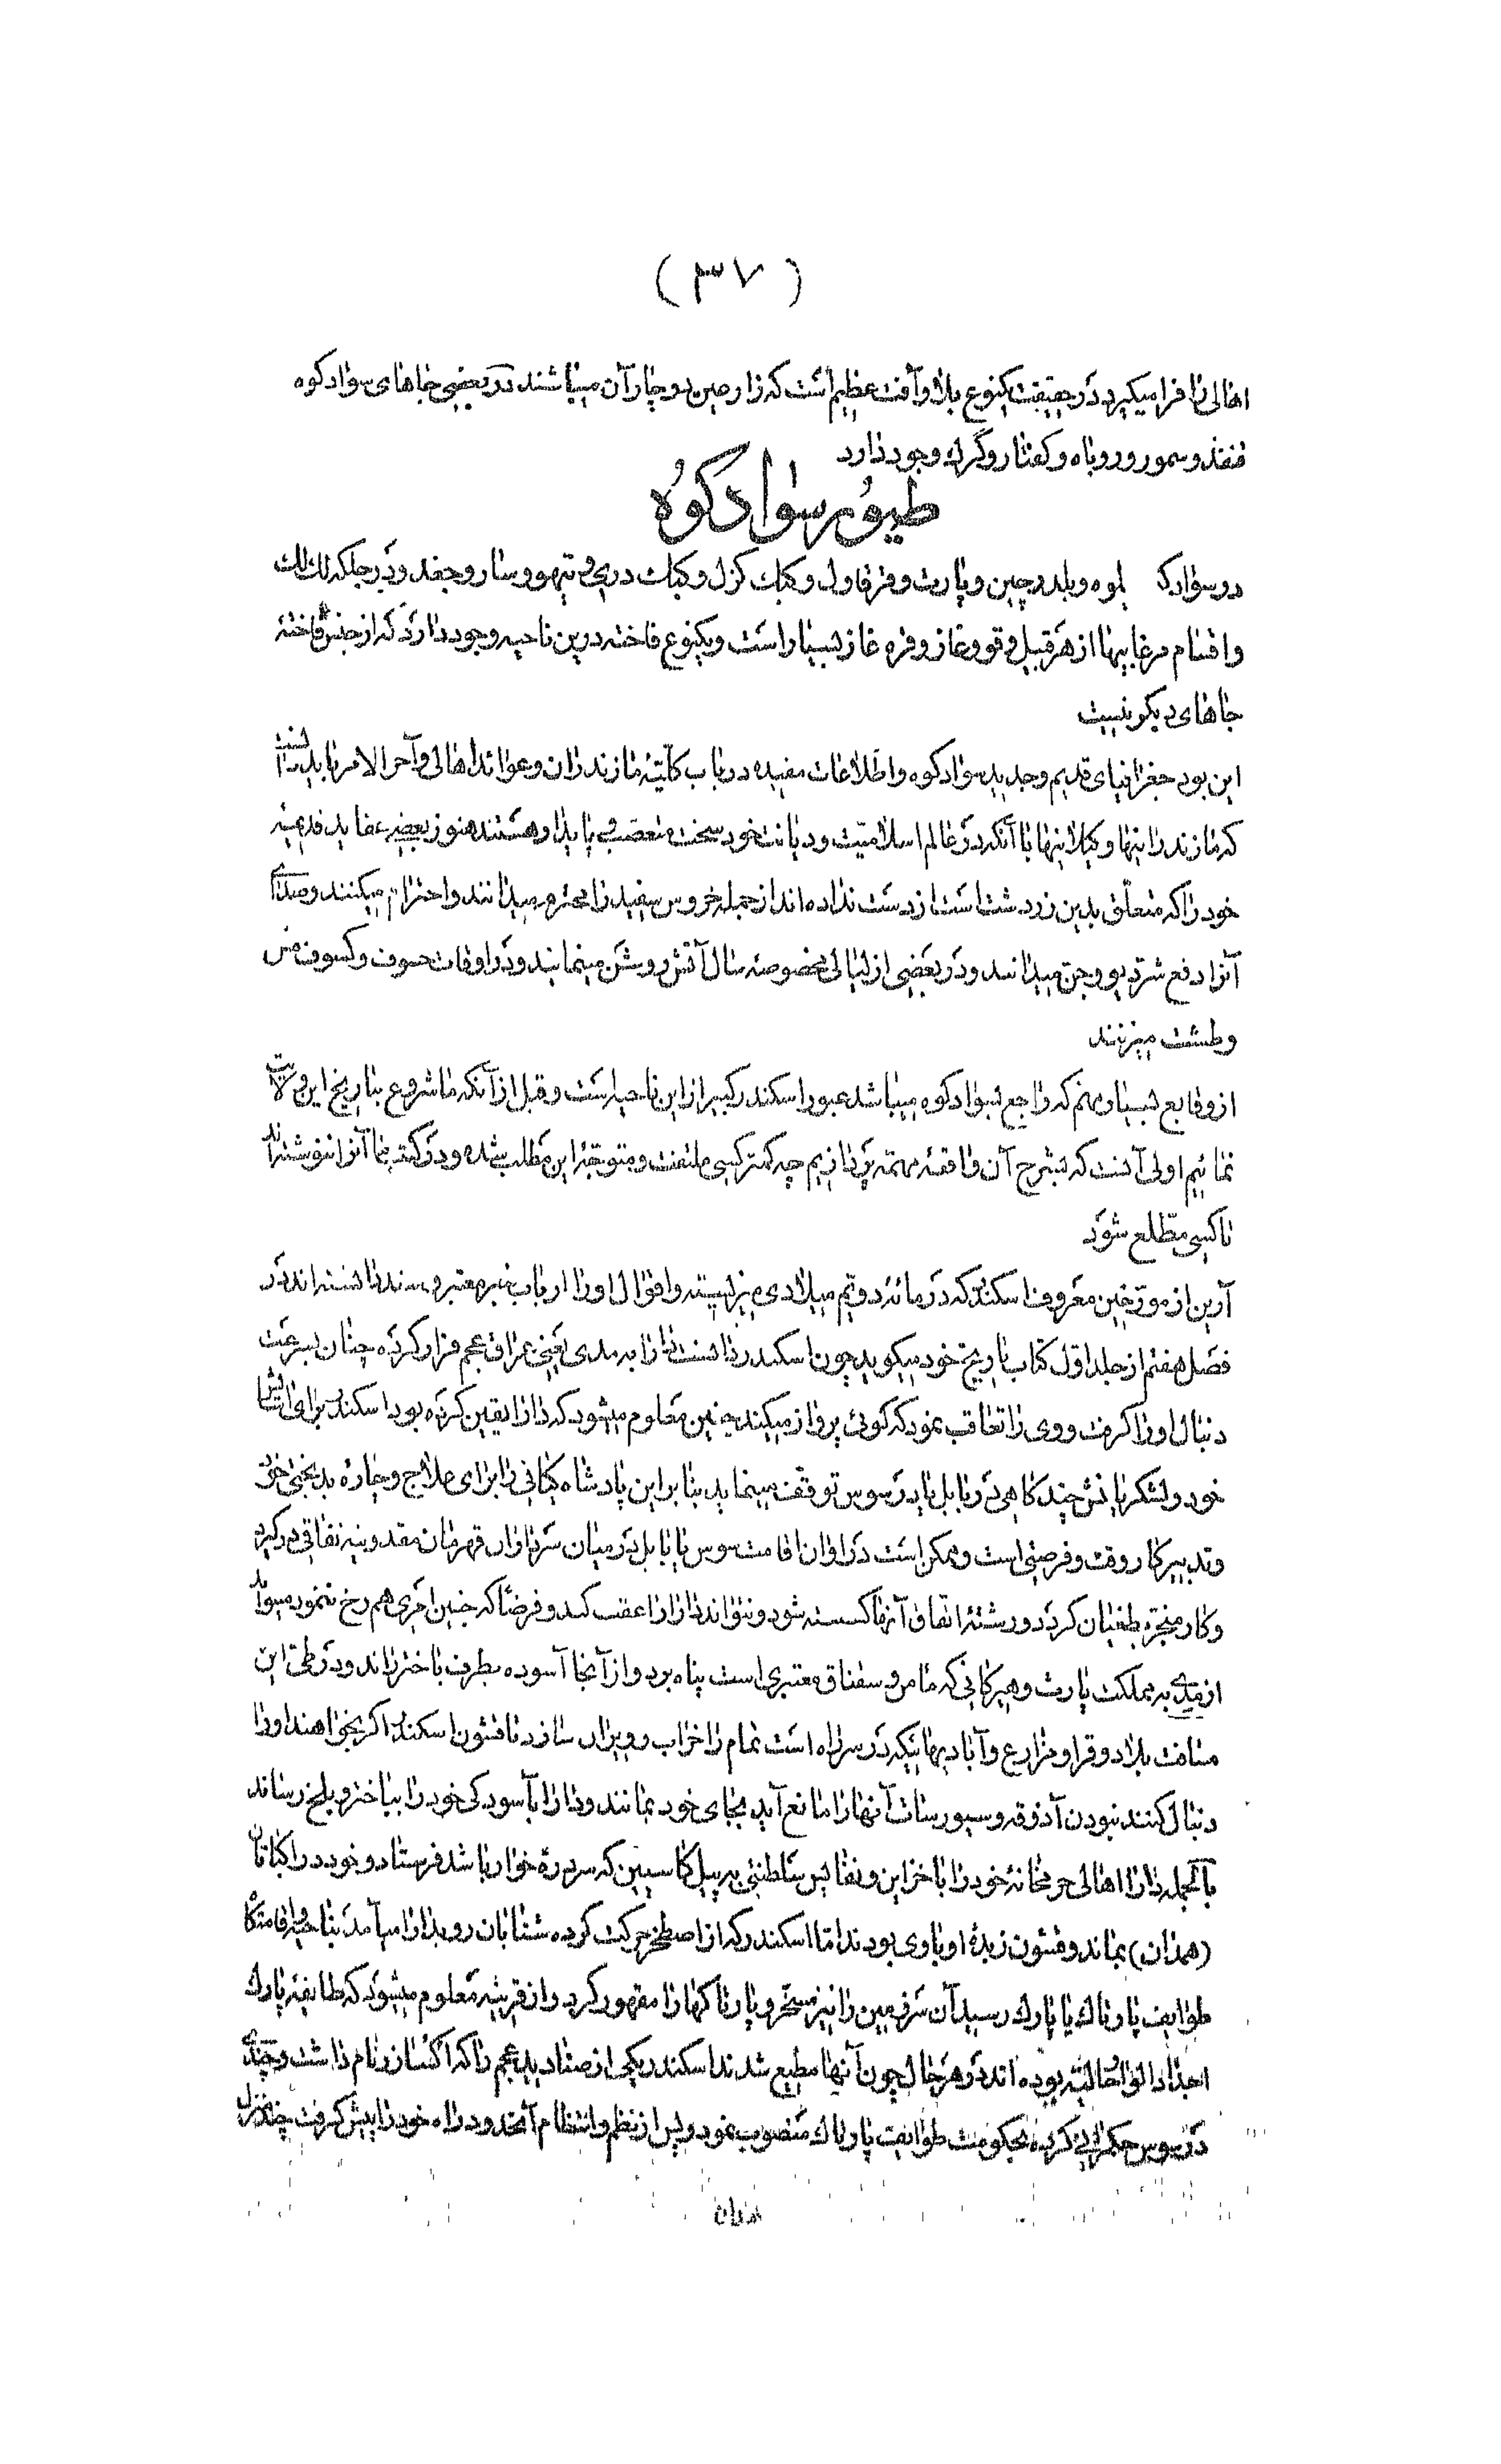 ( ۳۷ )
اهالی را فرا میگیرد در حقیقت یکنوع بلا و آفت عظیم است که زارعین دوچار آن میباشند در بعضی جاهای سوادکوه
قنفذ و سمور و روباه و کفتار و گرگ وجود دارد
طیور سوادکوه
در سوادک بلوه و بلدرچین و پارت و قرقاول و کبک کزل و کبک دری و تیهو و سار و جغد و در جلکه لک لک
و اقسام مرغابیها از هر قبیل و قو و غاز و قره غاز بسیار است و یکنوع فاخته درین ناحیه وجود دارد که از جنس فاخته
جاهای دیگر نیست
این بود جغرافیای قدیم و جدید سوادکوه و اطلاعات مفیده در باب کلّیّهٔ مازندران و عوائد اهالی و آخر الامر باید دانست
که مازندرانیها و گیلانیها با آنکه در عالم اسلامیّت و دیانت خود سخت متعصّب و پایدار هستند هنوز بعضی عقاید قدیمیه
خود را که متعلّق بدین زردشت است از دست نداده‌اند از جمله خروس سفید را محترم میدانند و احترام میکنند و صدای
آنرا دفع شرّ دیو و جن میدانند و در بعضی از لیالی مخصوصهٔ سال آتش روشن مینمایند و در اوقات خسوف و کسوف مس
و طشت میزنند
از وقایع بسیار مهم که راجع بسوادکوه میباشد عبور اسکندر کبیر از این ناحیه است و قبل از آنکه ما شروع بتاریخ این ولایت
نمائیم اولی آنست که بشرح آن واقعهٔ مهمّه پردازیم چه کمتر کسی ملتفت و متوجّه این مطلب شده و در کتب ما آنرا ننوشته‌اند
تا کسی مطّلع شود
آرین از مورّخین معروف اسکندر که در مائهٔ دویّم میلادی میزیسته و اقوال او را ارباب خبر معتبر و سند دانسته‌اند در
فصل هفتم از جلد اوّل کتاب تاریخ خود میگوید چون اسکندر دانست دارا به مدی یعنی عراق عجم فرار کرده چنان بسرعت
دنبال او را گرفت و وی را تعاقب نمود که گوئی پرواز میکند چنین معلوم میشود که دارا یقین کرده بود اسکندر برای آسایش
خود و لشکریانش چندگاهی در بابل یا در سوس توقّف مینماید بنابراین پادشاه کیانی را برای علاج و چارهٔ بدبختی خود
و تدبیر کار وقت و فرصتی است و ممکن است در اوان اقامت سوس یا بابل در میان سرداران قهرمان مقدونیه نفاقی در گیرد
و کار منجرّ بطغیان گردد و رشتهٔ اتفاق آنها گسسته شود و نتواند دارا را عقب کند و فرضاً که چنین امری هم رخ ننمود میتواند
از مدی به مملکت پارت و هیرکانی که مامن و سقناق معتبری است پناه برد و از آنجا آسوده بطرف باختر راند و در طیّ این
مسافت بلاد و قرا و مزارع و آبادیهائیکه در سر راه است تمام را خراب و ویران سازد تا قشون اسکندر اگر بخواهند او را
دنبال کنند نبودن آذوقه و سیورسات آنها را مانع آید بجای خود بمانند و دارا بآسودگی خود را بباختر و بلخ رساند
بالجمله دارا اهالی حرمخانهٔ خود را با خزاین و نفایس سلطنتی به پیل کاسپین که سردرهٔ خوار باشد فرستاد و خود در اکباتان
(همدان) بماند و قشون زبدهٔ او با وی بودند امّا اسکندر که از اصطخر حرکت کرده شتابان رو بدارا میآمد بناحیهٔ اقامتگاه
طوایف پارتاک یا پارک رسید آن سرزمین را نیز مسخّر و پارتاکها را مقهور کرد و از قرینه معلوم میشود که طایفهٔ پارک
اجداد الوار حالیّه بوده‌اند در هر حال چون آنها مطیع شدند اسکندر یکی از صنادید عجم را که اکسازر نام داشت و چندی
در سوس حکمرانی کرده بحکومت طوایف پارتاک منصوب نمود و پس از نظم و انتظام آنحدود راه خود را پیش گرفت چند منزل